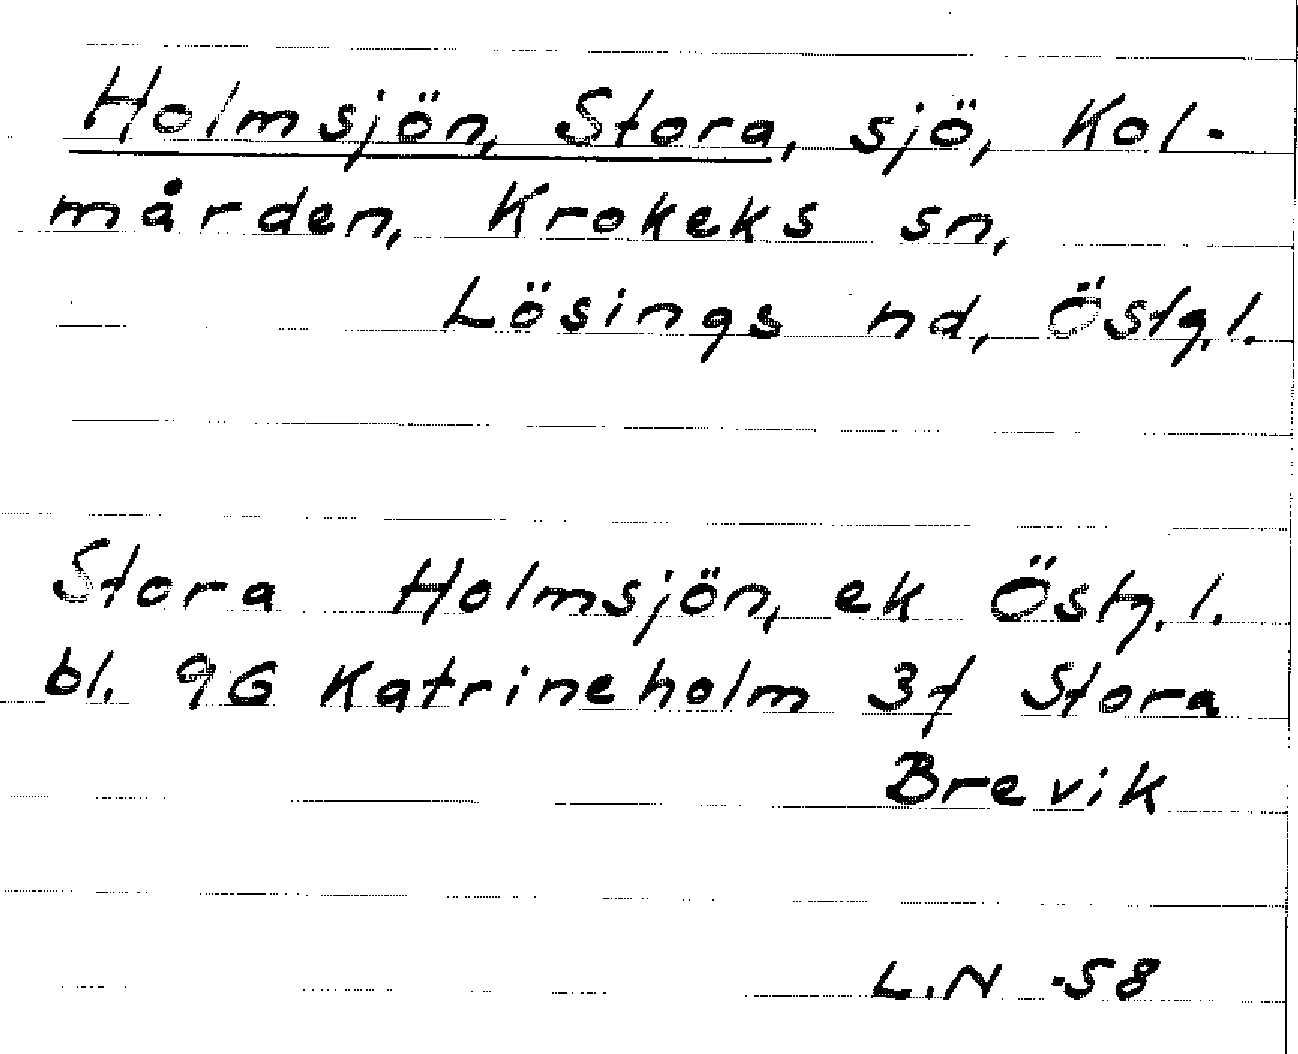 Holmsjön, Stora, sjö, Kol-
mården, Krokeks sn,
Lösings hd, Östg.l.
Stora Holmsjön, ek Östg.l.
bl. 9G Katrineholm 3f Stora
Brevik
L.N -58